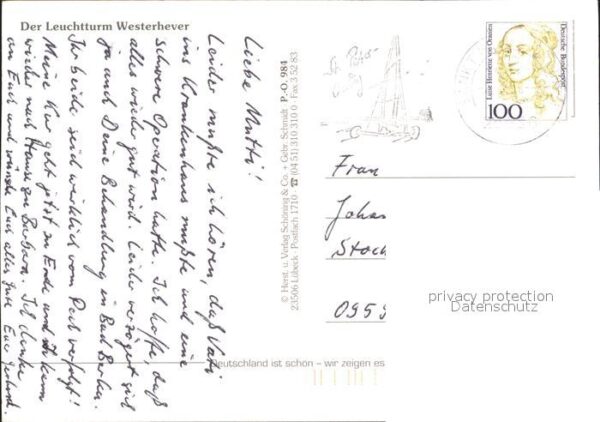 Der Leuchtturm Westerhever
Liebe Mutti!
Leider mußte ich hören, daß Vati
ins Krankenhaus mußte und eine
schwere Operation hatte. Ich hoffe, daß
alles wieder gut wird. Leider verzögert sich
ja auch Deine Behandlung in Bad Berka.
Ihr beide seid wirklich vom Pech verfolgt!
Meine Kur geht jetzt zu Ende und ich kann
wieder nach Hause zu Barbara. Ich denke
an Euch und wünsche Euch alles Gute. Euer
© Horst. u. Verlag Schöning & Co. + Gebr. Schmidt P.O. 9684
23506 Lübeck · Postfach 1710 · ☎ (04 51) 310 310 0 · Fax 3 52 83
St. Peter
Luise Henriette von Oranien
Deutsche Bundespost
100
Frau
Johan
Stoc
0959
privacy protection
Datenschutz
Deutschland ist schön – wir zeigen es